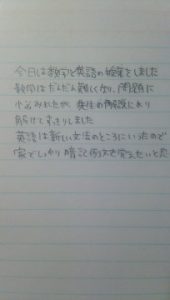 今日は数学と英語の授業をしました
数学はだんだん難しくなり、問題に
悩みましたが、先生の解説により
解けてすっきりしました
英語は新しい文法のところにいったので
家でしっかり暗記例文で覚えたいと思